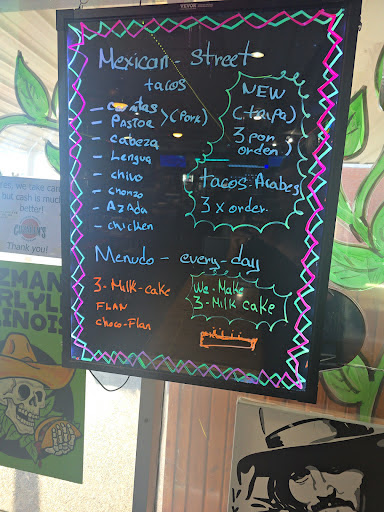 Mexican - street
tacos
- carnitas
- PASTOR > (Pork)
- Cabeza
- Lengua
- chivo
- chorizo
- AzAda
- chicken
NEW
(tripa)
3 por
orden
tacos Arabes
3 x order.
Menudo - every-day
3-Milk-cake
FLAN
choco-Flan
We-Make
3-Milk cake
but cash is much
better!
Thank you!